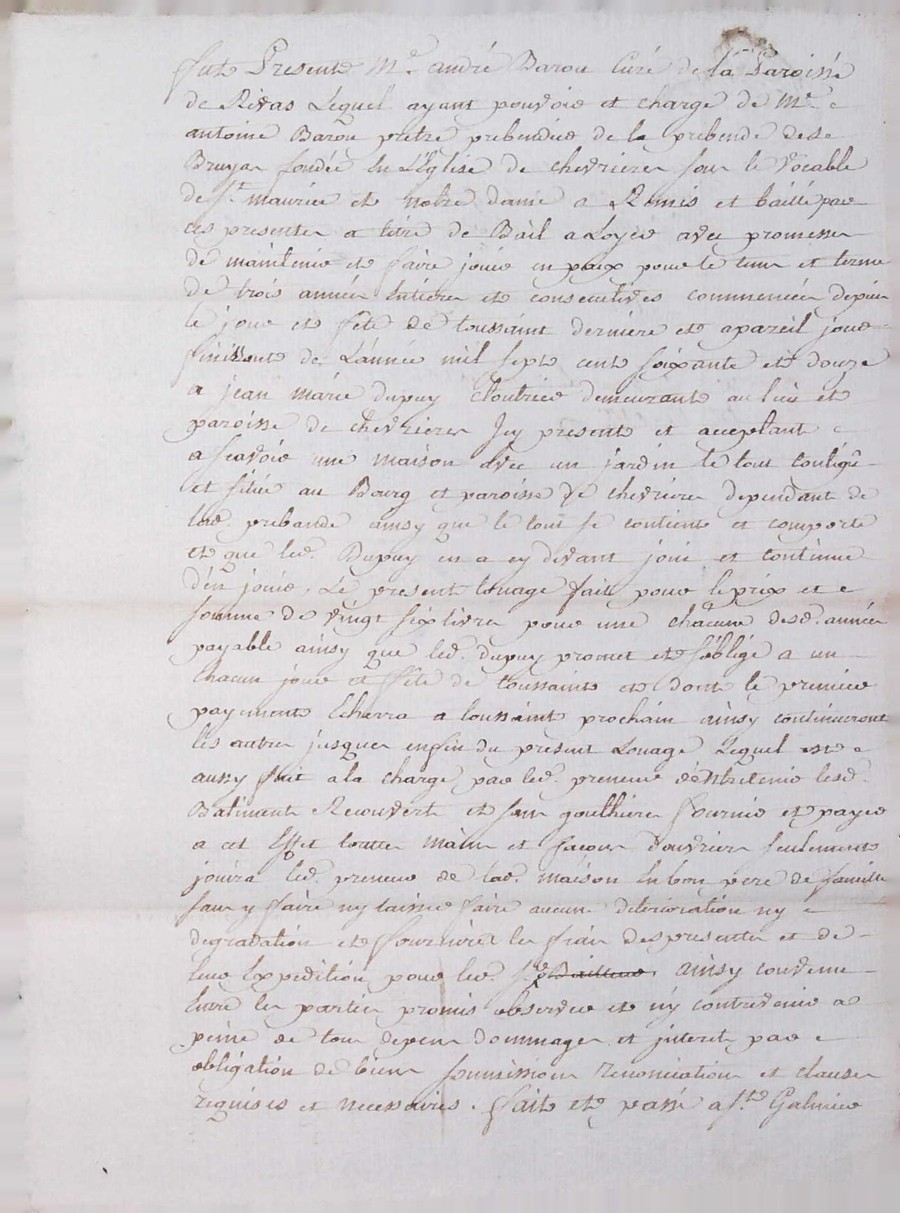 fut Present Mre andré Barou Curé de la Paroisse
de Rivas Lequel ayant pouvoir et charge de Mre
antoine Barou pretre prebendier de la prebende des
Bruyas fondée En L'Eglise de chevrieres sous le vocable
de st maurice et notre dame a Remis et baillé par
ces presentes a titre de Bail a Loyer avec promesses
de maintenir et faire jouir en paix pour le tems et terme
de trois années Entieres et consecutives commencées depuis
le jour et fete de toussaint derniere et apareil jour
finissant de L'année mil sept cent soixante et douze
a jean marie dupuy Cloutrier demeurant au lieu et
paroisse de chevrieres Icy present et acceptant
a scavoir une maison avec un jardin le tout contigu
et situé au Bourg et paroisse de chevrieres dependant de
lad. prebande ainsy que le tout se contient et comporte
et que led. Dupuy en a cy devant joui et continue
d'en jouir. Le present Louage fait pour le prix et
somme de vingt six livres pour une chacune desd. années
payable ainsy que led. dupuy promet et s'oblige a un
chacun jour et fete de toussaint et dont le premier
payement Echerra a toussaint prochain ainsy continueront
les autres jusques enfin du present Louage Lequel est
aussy fait a la charge par led. preneur d'entretenir lesd.
Batiments Recouverts et sans goulthieres fournir et payer
a cet Effet toutes mains et façons d'ouvriers seulement
jouira led. preneur de lad. maison En bon pere de famille
sans y faire ny laisser faire aucune deterioration ny
degradation et fournira les frais des presentes et de
leur Expedition pour led. sr Bailleur ainsy convenu
Entre les parties promis observer et n'y contrevenir a
peine de tous depens dommages et interets par
obligation de biens soumissions renonciations et clauses
requises et necessaires. fait et passé a st Galmier